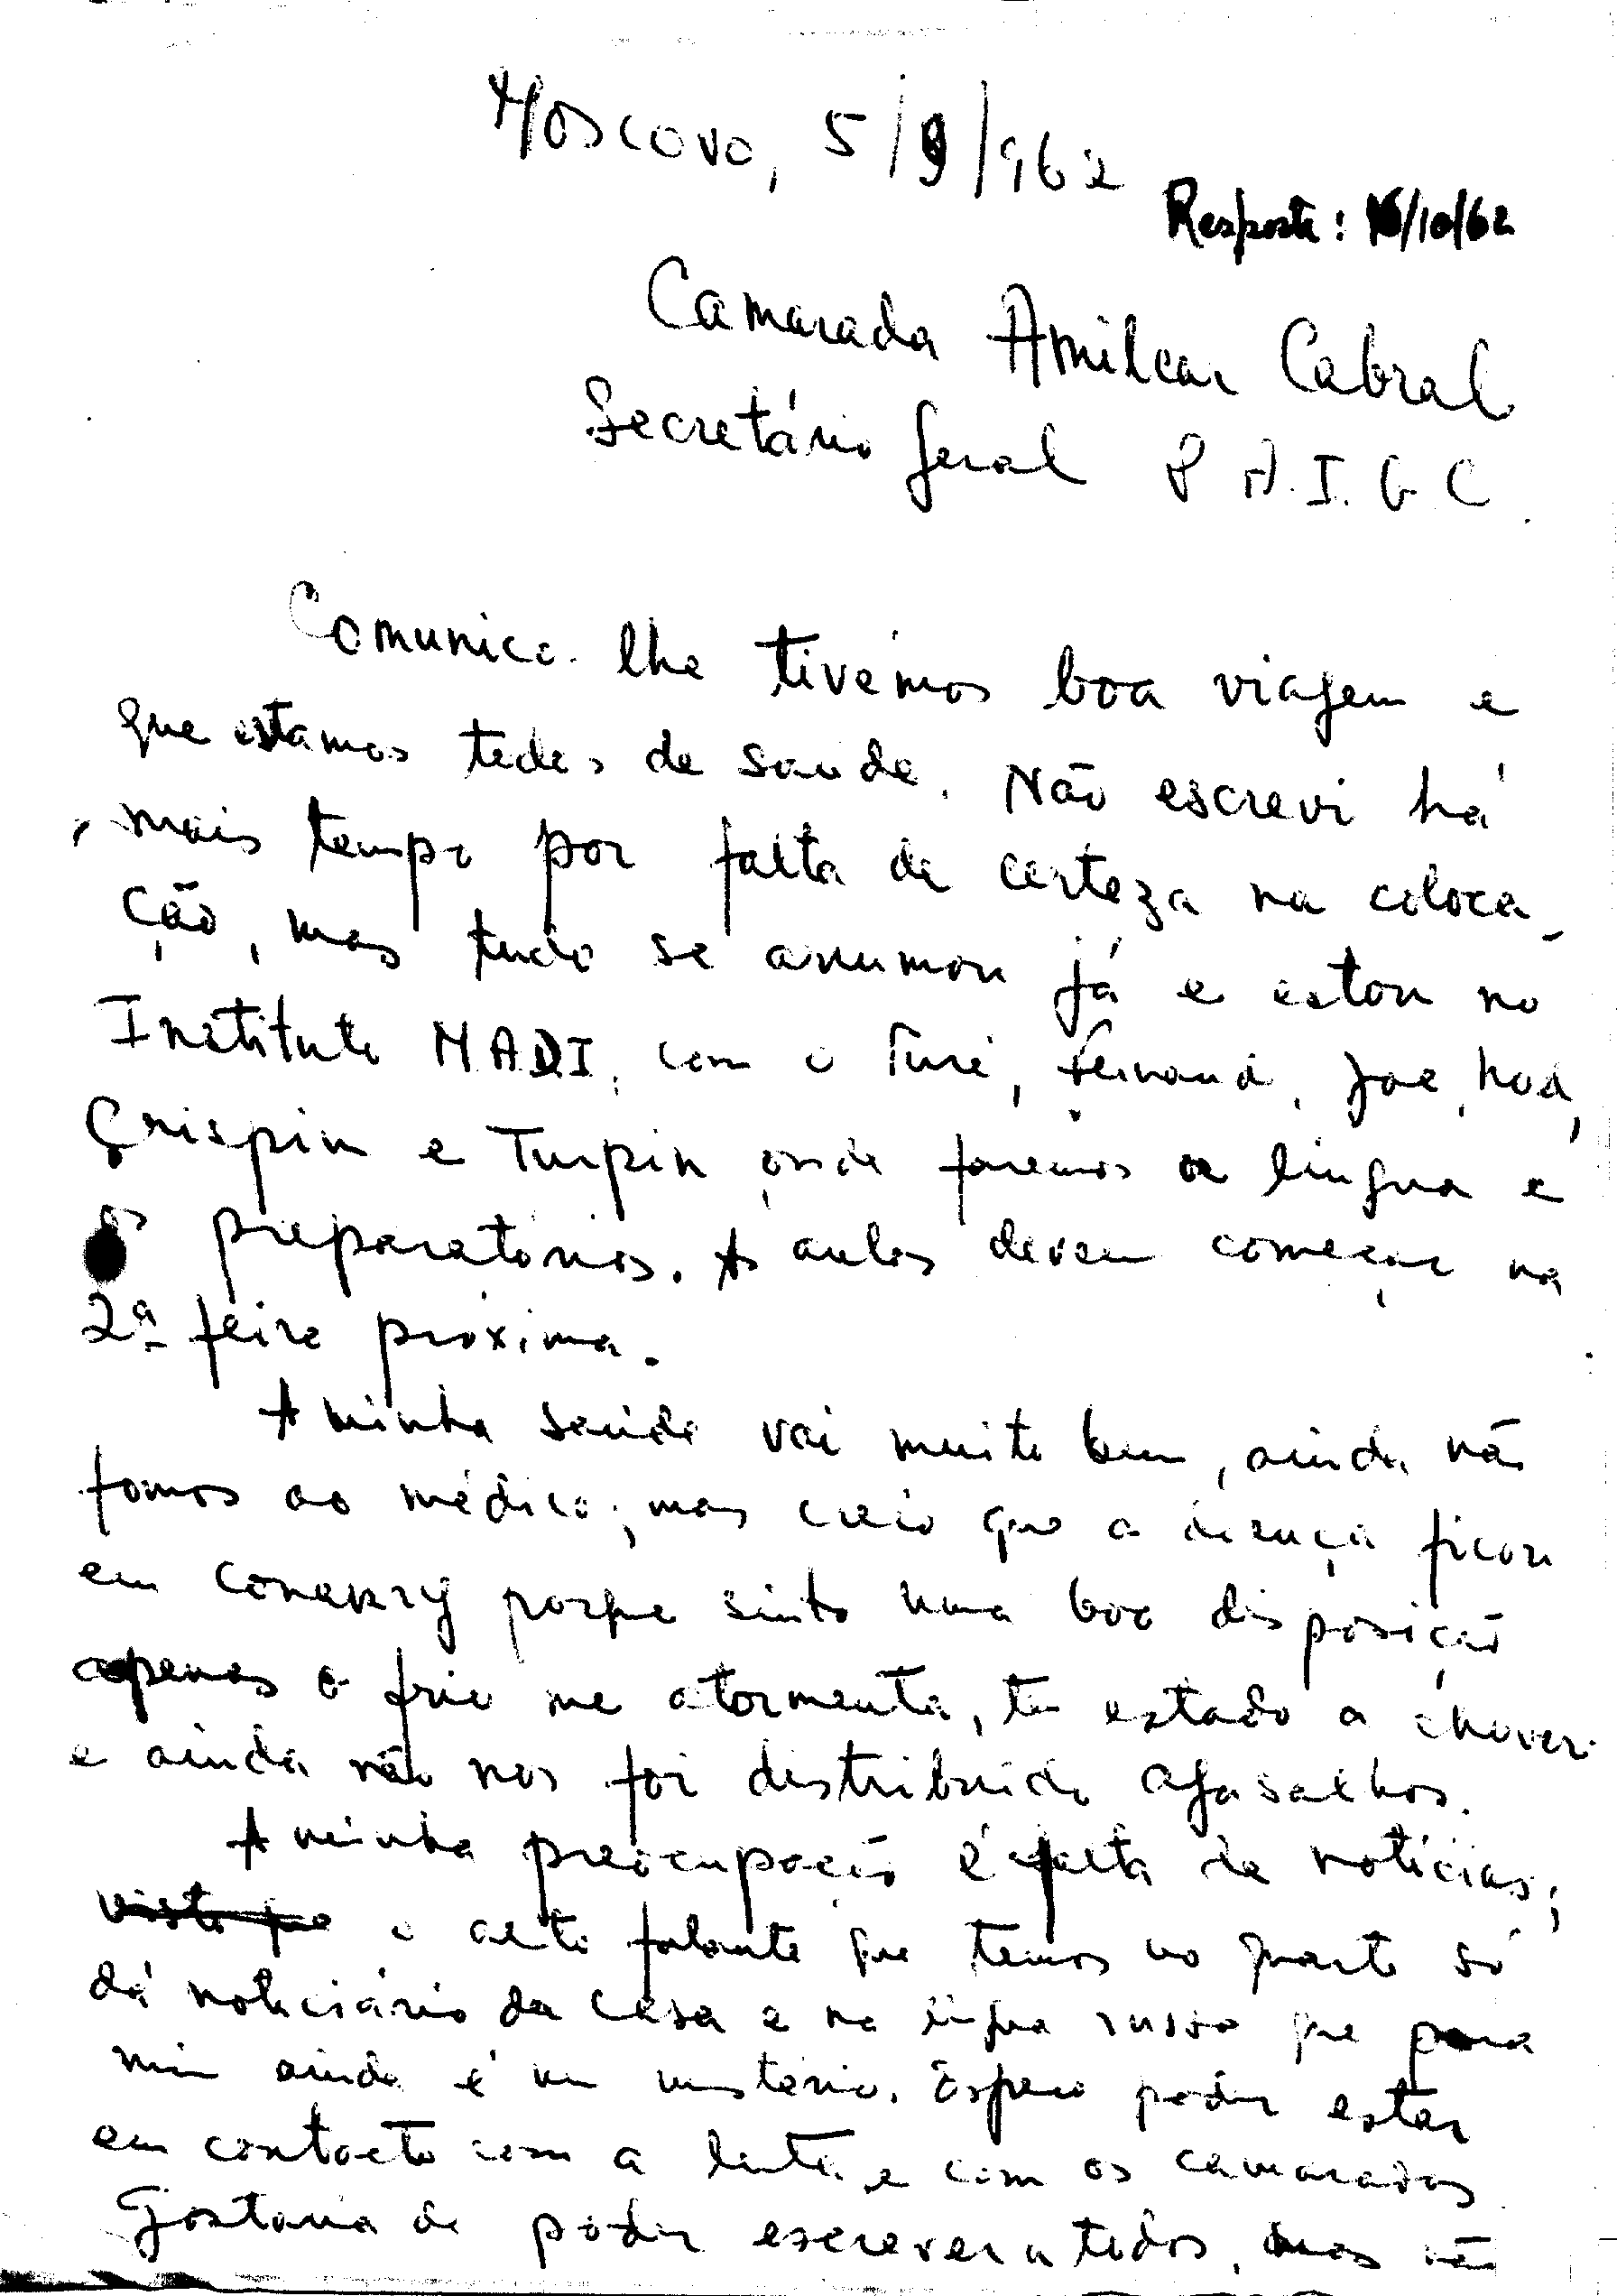 Moscovo, 5/9/962
Resposta: 16/10/62
Camarada Amilcar Cabral
Secretário geral P A.I.G C.
Comunico-lhe tivemos boa viagem e
que estamos todos de saude. Não escrevi há
mais tempo por falta de certeza na coloca-
ção, mas tudo se arrumou já e estou no
Instituto MADI, com o Turé, Fernand,
Crispin e Turpin onde faremos a lingua e
os preparatórios. As aulas devem começar na
2ª feira próxima.
A minha saúde vai muito bem, ainda não
fomos ao médico, mas creio que a doença ficou
em Conakry porque sinto uma boa disposição
apenas o frio me atormenta, tem estado a chover
e ainda não nos foi distribuido agasalhos.
A minha preocupação é falta de notícias;
visto que o alto falante que temos no quarto só
dá noticiário da casa e na lingua russa que para
mim ainda é um misterio. Espero poder estar
em contacto com a luta e com os camaradas
Gostaria de poder escrever a todos, mas não